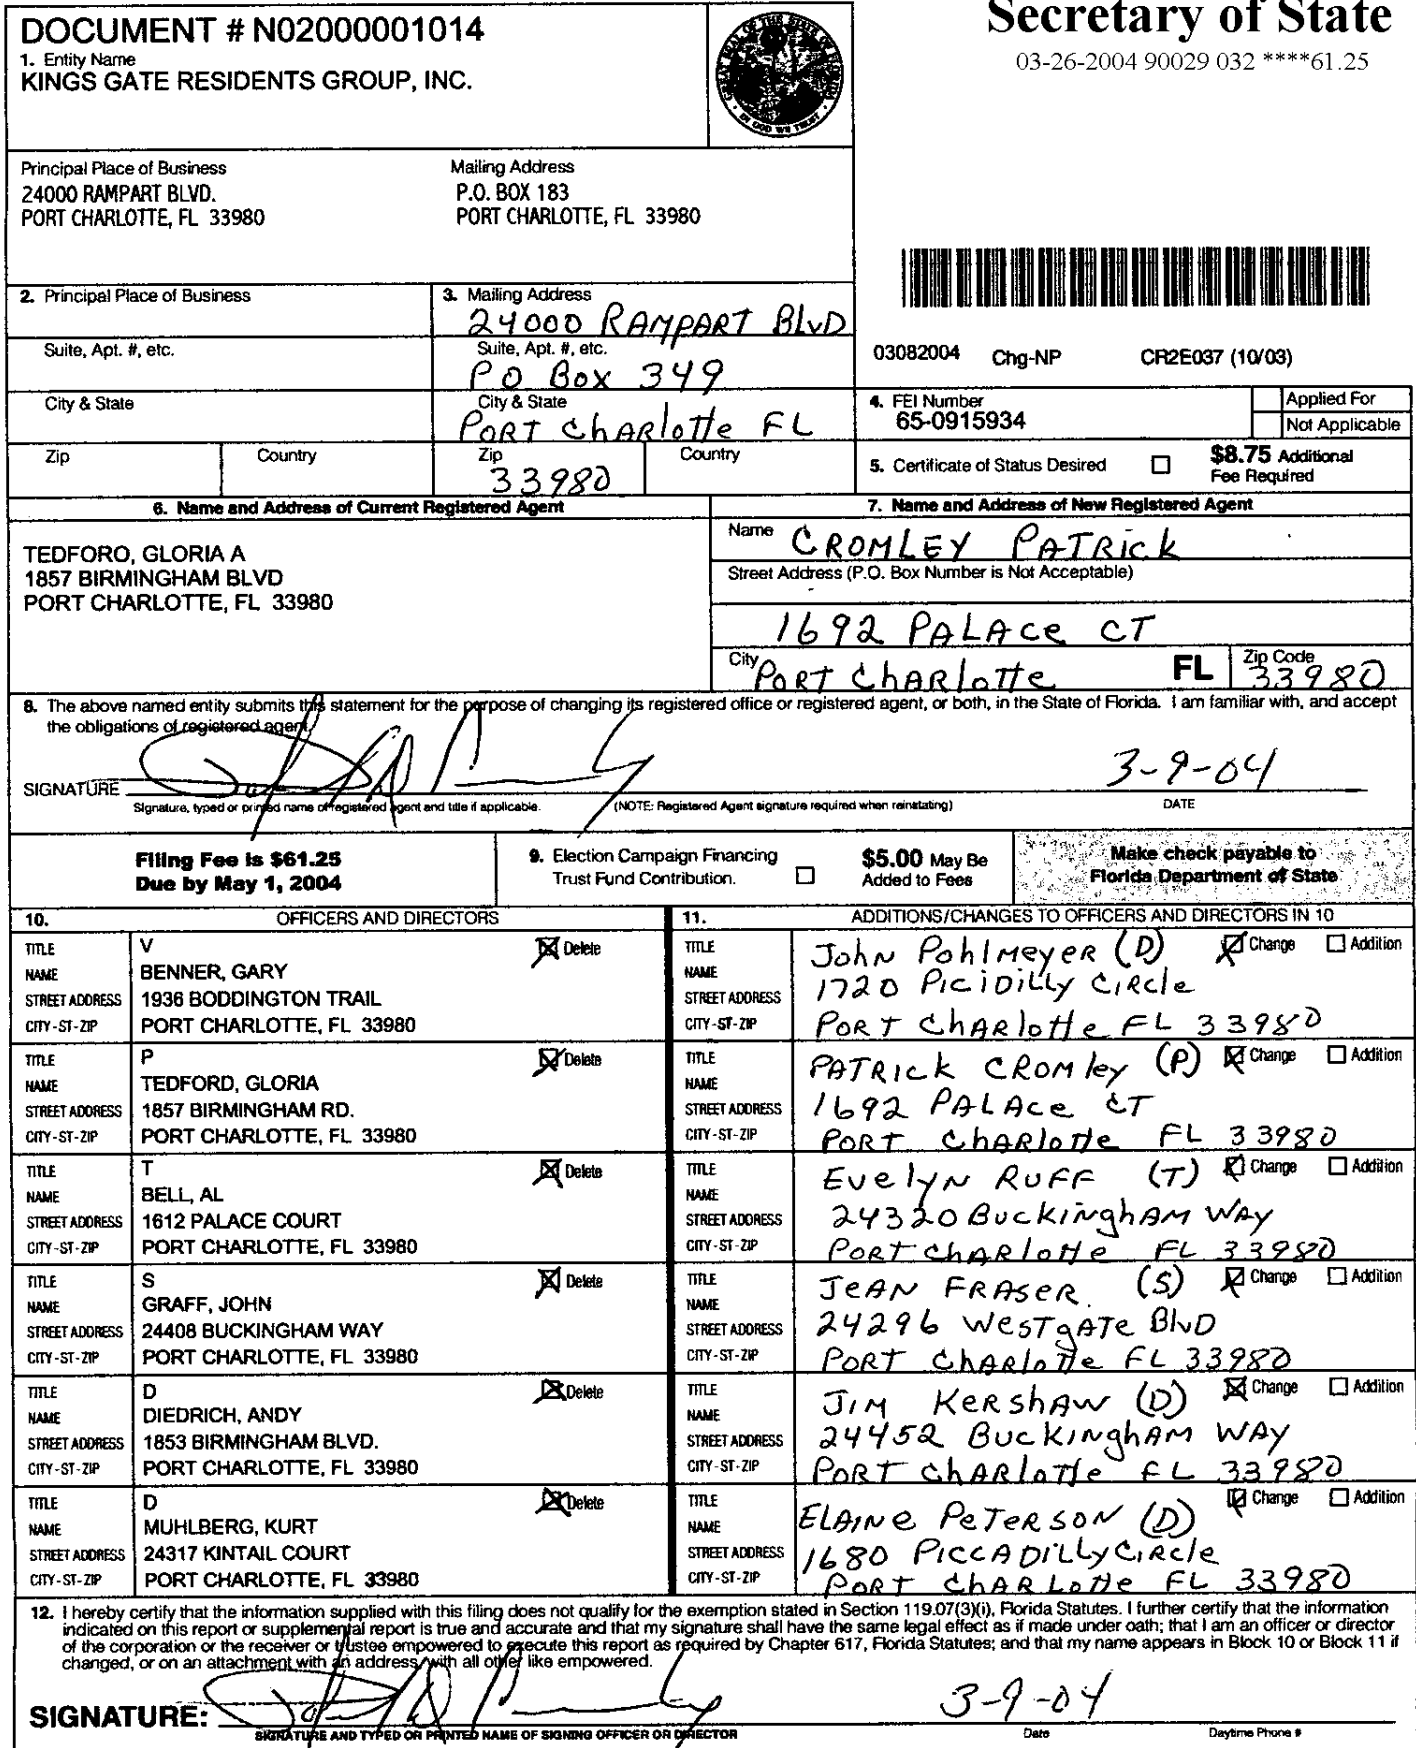 DOCUMENT # N02000001014
1. Entity Name
KINGS GATE RESIDENTS GROUP, INC.
Secretary of State
03-26-2004 90029 032 ****61.25
Principal Place of Business
24000 RAMPART BLVD.
PORT CHARLOTTE, FL 33980
Mailing Address
P.O. BOX 183
PORT CHARLOTTE, FL 33980
2. Principal Place of Business
Suite, Apt. #, etc.
City & State
Zip Country
3. Mailing Address
24000 RAMPART BLVD
Suite, Apt. #, etc.
PO Box 349
City & State
PORT ChARlotte FL
Zip Country
33980
03082004 Chg-NP CR2E037 (10/03)
4. FEI Number
65-0915934
Applied For
Not Applicable
5. Certificate of Status Desired
$8.75 Additional
Fee Required
6. Name and Address of Current Registered Agent
TEDFORO, GLORIA A
1857 BIRMINGHAM BLVD
PORT CHARLOTTE, FL 33980
7. Name and Address of New Registered Agent
Name CROMLEY PATRICK
Street Address (P.O. Box Number is Not Acceptable)
1692 PALACe CT
City PORT ChARlotte FL Zip Code 33980
8. The above named entity submits this statement for the purpose of changing its registered office or registered agent, or both, in the State of Florida. I am familiar with, and accept
the obligations of registered agent.
SIGNATURE 3-9-04
Signature, typed or printed name of registered agent and title if applicable. (NOTE: Registered Agent signature required when reinstating) DATE
Filing Fee is $61.25
Due by May 1, 2004
9. Election Campaign Financing
Trust Fund Contribution.
$5.00 May Be
Added to Fees
Make check payable to
Florida Department of State
10. OFFICERS AND DIRECTORS
TITLE V Delete
NAME BENNER, GARY
STREET ADDRESS 1936 BODDINGTON TRAIL
CITY-ST-ZIP PORT CHARLOTTE, FL 33980
TITLE P Delete
NAME TEDFORD, GLORIA
STREET ADDRESS 1857 BIRMINGHAM RD.
CITY-ST-ZIP PORT CHARLOTTE, FL 33980
TITLE T Delete
NAME BELL, AL
STREET ADDRESS 1612 PALACE COURT
CITY-ST-ZIP PORT CHARLOTTE, FL 33980
TITLE S Delete
NAME GRAFF, JOHN
STREET ADDRESS 24408 BUCKINGHAM WAY
CITY-ST-ZIP PORT CHARLOTTE, FL 33980
TITLE D Delete
NAME DIEDRICH, ANDY
STREET ADDRESS 1853 BIRMINGHAM BLVD.
CITY-ST-ZIP PORT CHARLOTTE, FL 33980
TITLE D Delete
NAME MUHLBERG, KURT
STREET ADDRESS 24317 KINTAIL COURT
CITY-ST-ZIP PORT CHARLOTTE, FL 33980
11. ADDITIONS/CHANGES TO OFFICERS AND DIRECTORS IN 10
TITLE John PohlMeyeR (D) Change Addition
NAME
STREET ADDRESS 1720 PiciDilly CiRcle
CITY-ST-ZIP PORT ChARlotte FL 33980
TITLE PATRick CROMley (P) Change Addition
NAME
STREET ADDRESS 1692 PALAce CT
CITY-ST-ZIP PORT ChARlotte FL 33980
TITLE EvelyN RUFF (T) Change Addition
NAME
STREET ADDRESS 24320 BuckiNghAM WAy
CITY-ST-ZIP PORT ChARlotte FL 33980
TITLE JeAN FRASeR (S) Change Addition
NAME
STREET ADDRESS 24296 WeSTgATe BlvD
CITY-ST-ZIP PORT ChARloTTe FL 33980
TITLE JiM KeRshAw (D) Change Addition
NAME
STREET ADDRESS 24452 BuckiNghAM WAy
CITY-ST-ZIP PORT ChARloTTe FL 33980
TITLE Change Addition
NAME ELAiNe PeTeRSON (D)
STREET ADDRESS 1680 PiccADiLLy CiRcle
CITY-ST-ZIP PORT ChARLoTTe FL 33980
12. I hereby certify that the information supplied with this filing does not qualify for the exemption stated in Section 119.07(3)(i), Florida Statutes. I further certify that the information
indicated on this report or supplemental report is true and accurate and that my signature shall have the same legal effect as if made under oath; that I am an officer or director
of the corporation or the receiver or trustee empowered to execute this report as required by Chapter 617, Florida Statutes; and that my name appears in Block 10 or Block 11 if
changed, or on an attachment with an address, with all other like empowered.
SIGNATURE: 3-9-04
SIGNATURE AND TYPED OR PRINTED NAME OF SIGNING OFFICER OR DIRECTOR Date Daytime Phone #